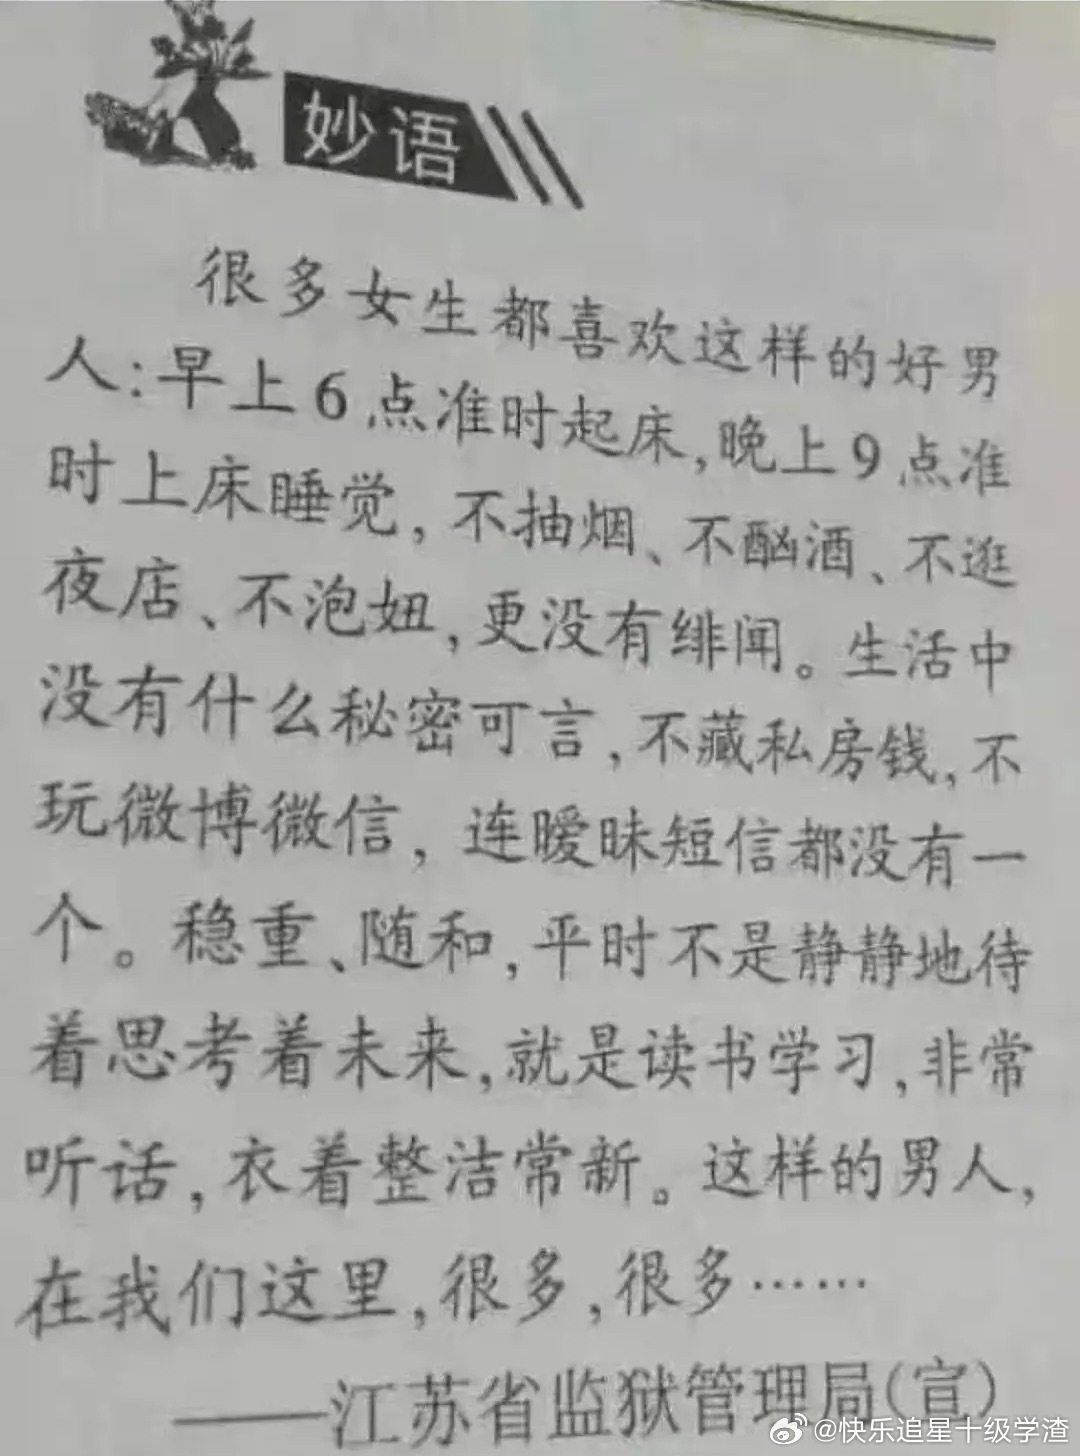 妙语
很多女生都喜欢这样的好男
人:早上6点准时起床,晚上9点准
时上床睡觉,不抽烟、不酗酒、不逛
夜店、不泡妞,更没有绯闻。生活中
没有什么秘密可言,不藏私房钱,不
玩微博微信,连暧昧短信都没有一
个。稳重、随和,平时不是静静地待
着思考着未来,就是读书学习,非常
听话,衣着整洁常新。这样的男人,
在我们这里,很多,很多……
——江苏省监狱管理局(宣)
@快乐追星十级学渣